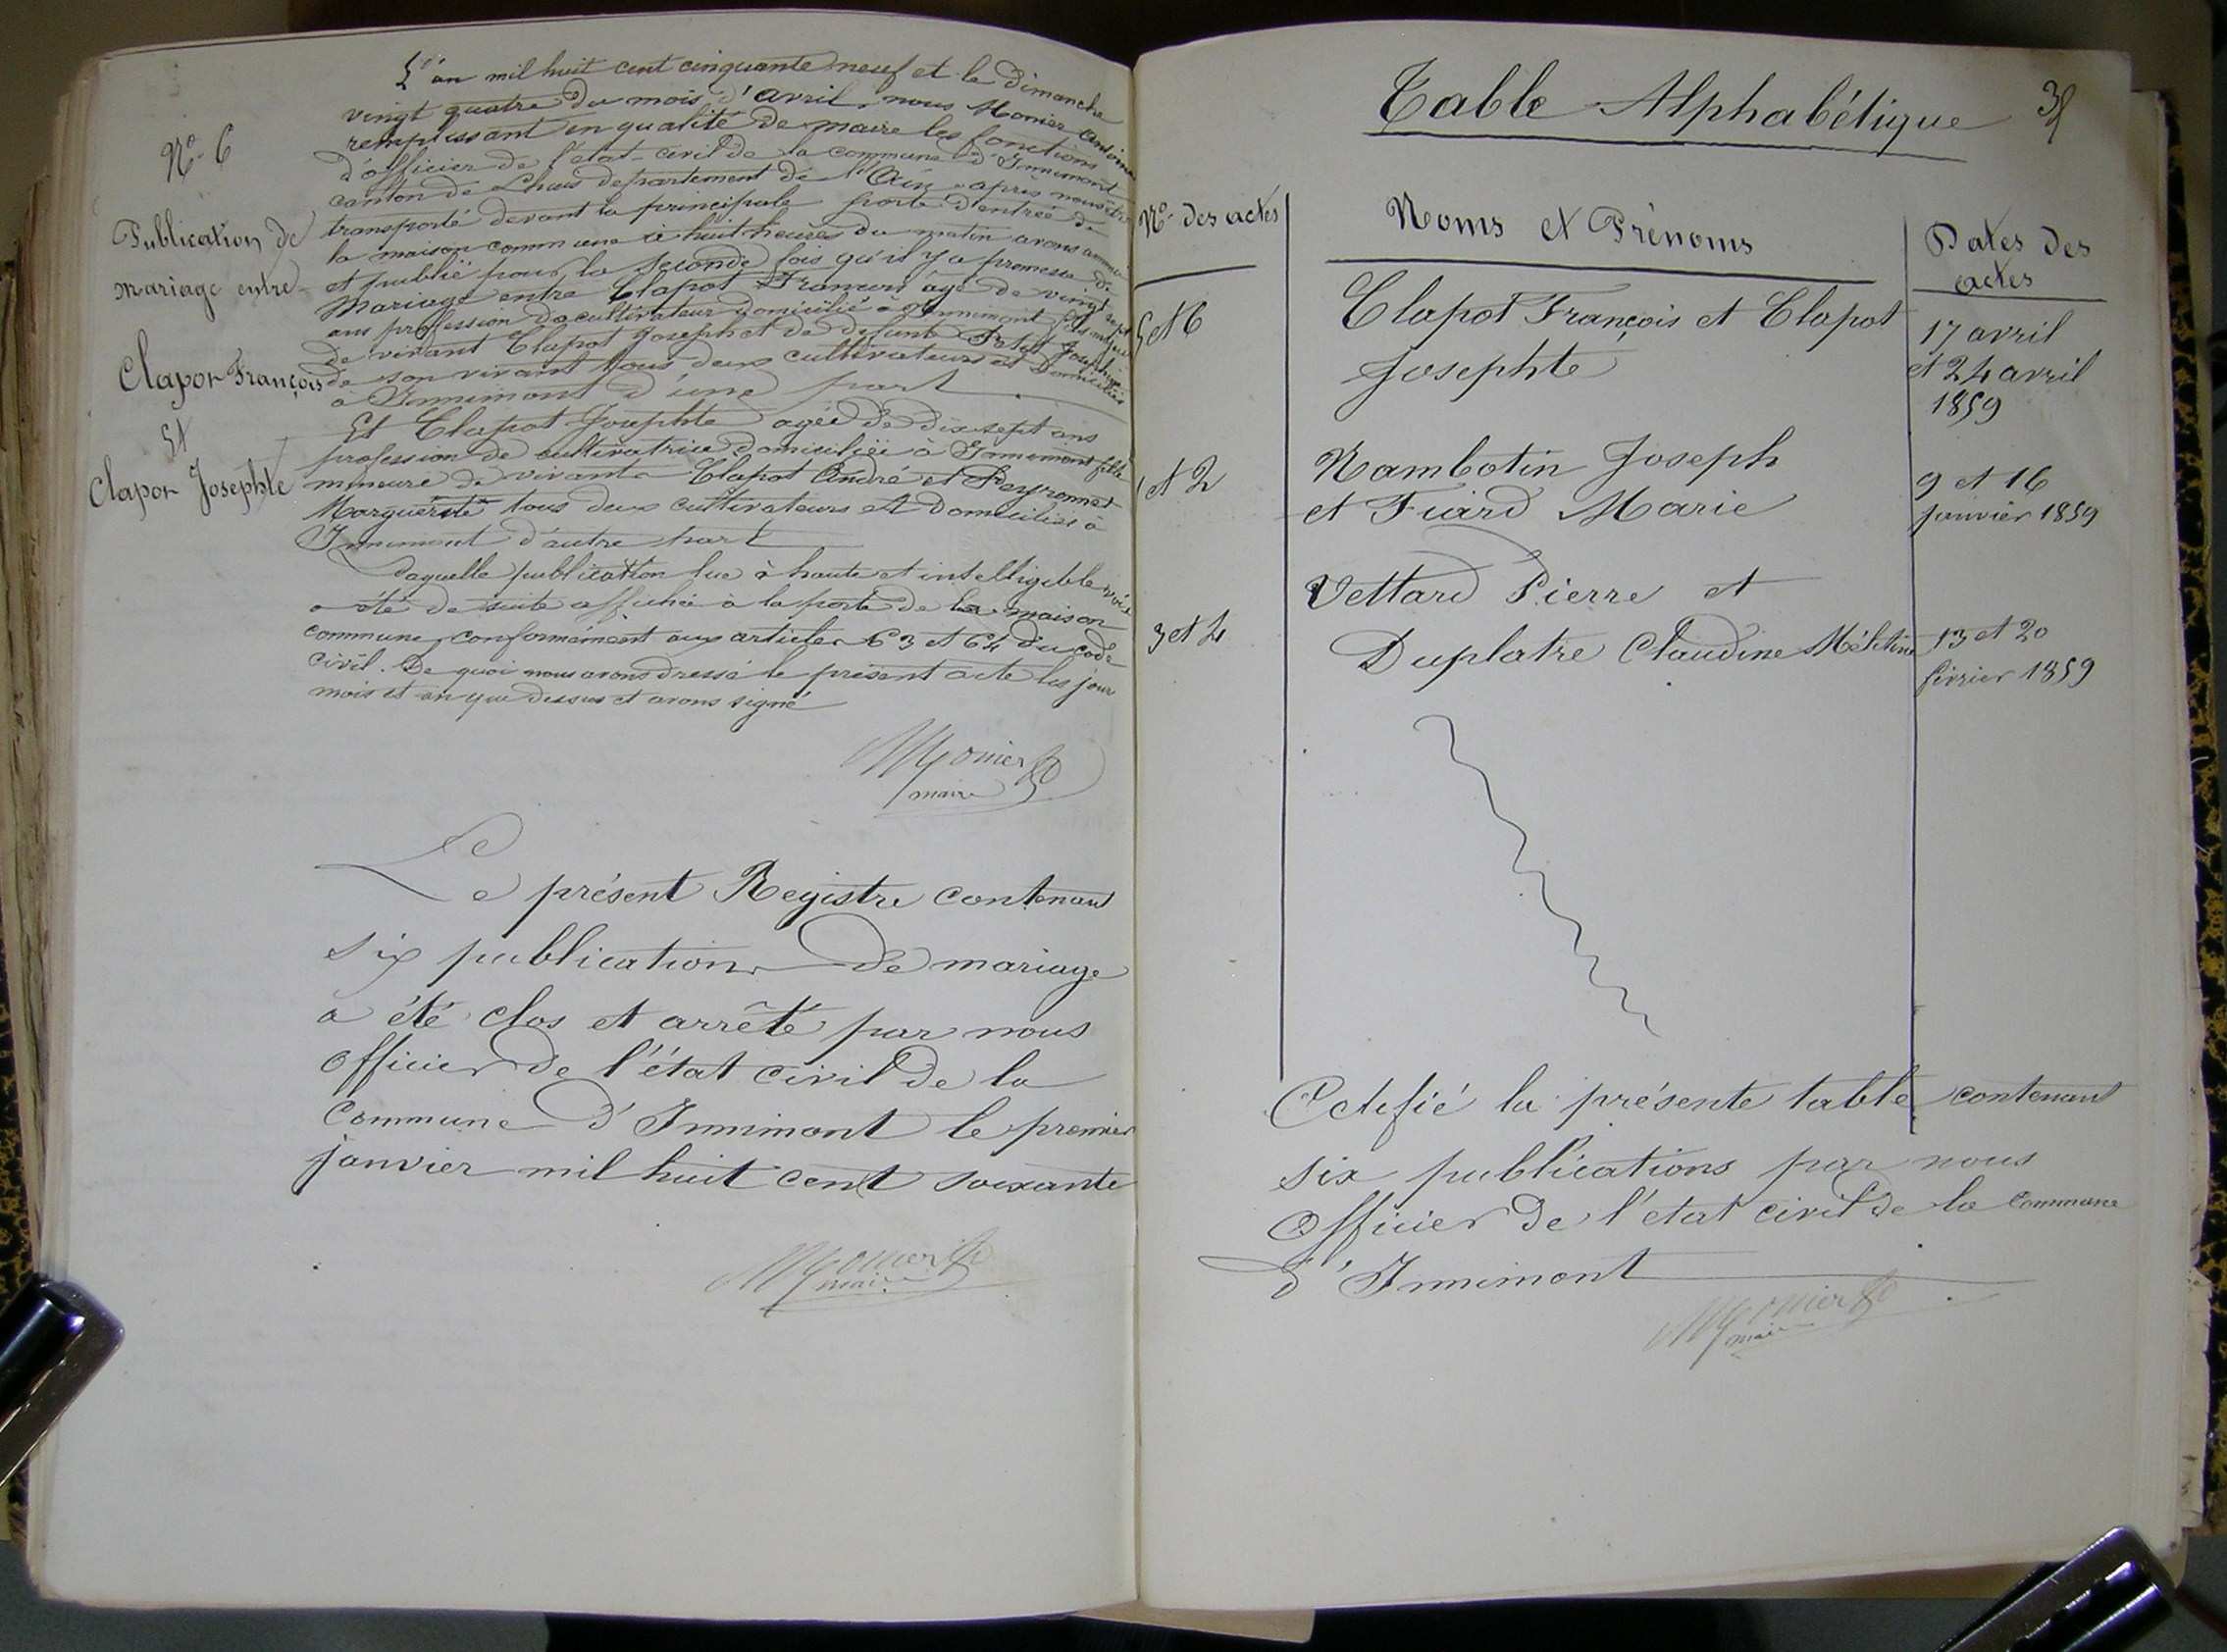 N° 6
Publication de
mariage entre
Clapot François
Et
Clapot Josephte
L'an mil huit cent cinquante neuf et le Dimanche
vingt quatre du mois d'avril, nous Monier Antoine
remplissant en qualité de maire les fonctions
d'officier de l'état-civil de la commune d'Innimont
canton de Lhuis departement de l'Ain après nous être
transporté devant la principale porte d'entrée de
la maison commune à huit heures du matin avons annoncé
et publié pour la seconde fois qu'il y a promesse de
Mariage entre Clapot François âgé de vingt sept
ans profession de cultivateur domicilié à Innimont fils majeur
de vivant Clapot Joseph et de defunte Josephte
de son vivant tous deux cultivateurs et Domiciliés
à Innimont d'une part
Et Clapot Josephte agée de dix sept ans
profession de cultivatrice domiciliée à Innimont fille
mineure de vivants Clapot André et Peyronnet
Marguerite tous deux cultivateurs et Domiciliés à
Innimont d'autre part
Laquelle publication lue à haute et intelligible voix
a été de suite affichée à la porte de la maison
commune, conformément aux articles 63 et 64 du code
civil. De quoi nous avons dressé le présent acte les jour
mois et an que dessus et avons signé
Monier
maire
Le présent Registre contenant
six publications de mariage
a été clos et arrêté par nous
Officier de l'état civil de la
Commune d'Innimont le premier
janvier mil huit cent soixante
Monier
maire
Table Alphabétique
N° des actes
Noms et Prénoms
Dates des
actes
5 et 6
Clapot François et Clapot
Josephte
17 avril
et 24 avril
1859
1 et 2
Nambotin Joseph
et Fiard Marie
9 et 16
janvier 1859
3 et 4
Vettard Pierre et
Duplatre Claudine Mélitine
13 et 20
février 1859
Cetefié la présente table contenant
six publications par nous
Officier de l'état civil de la commune
d'Innimont
Monier
maire